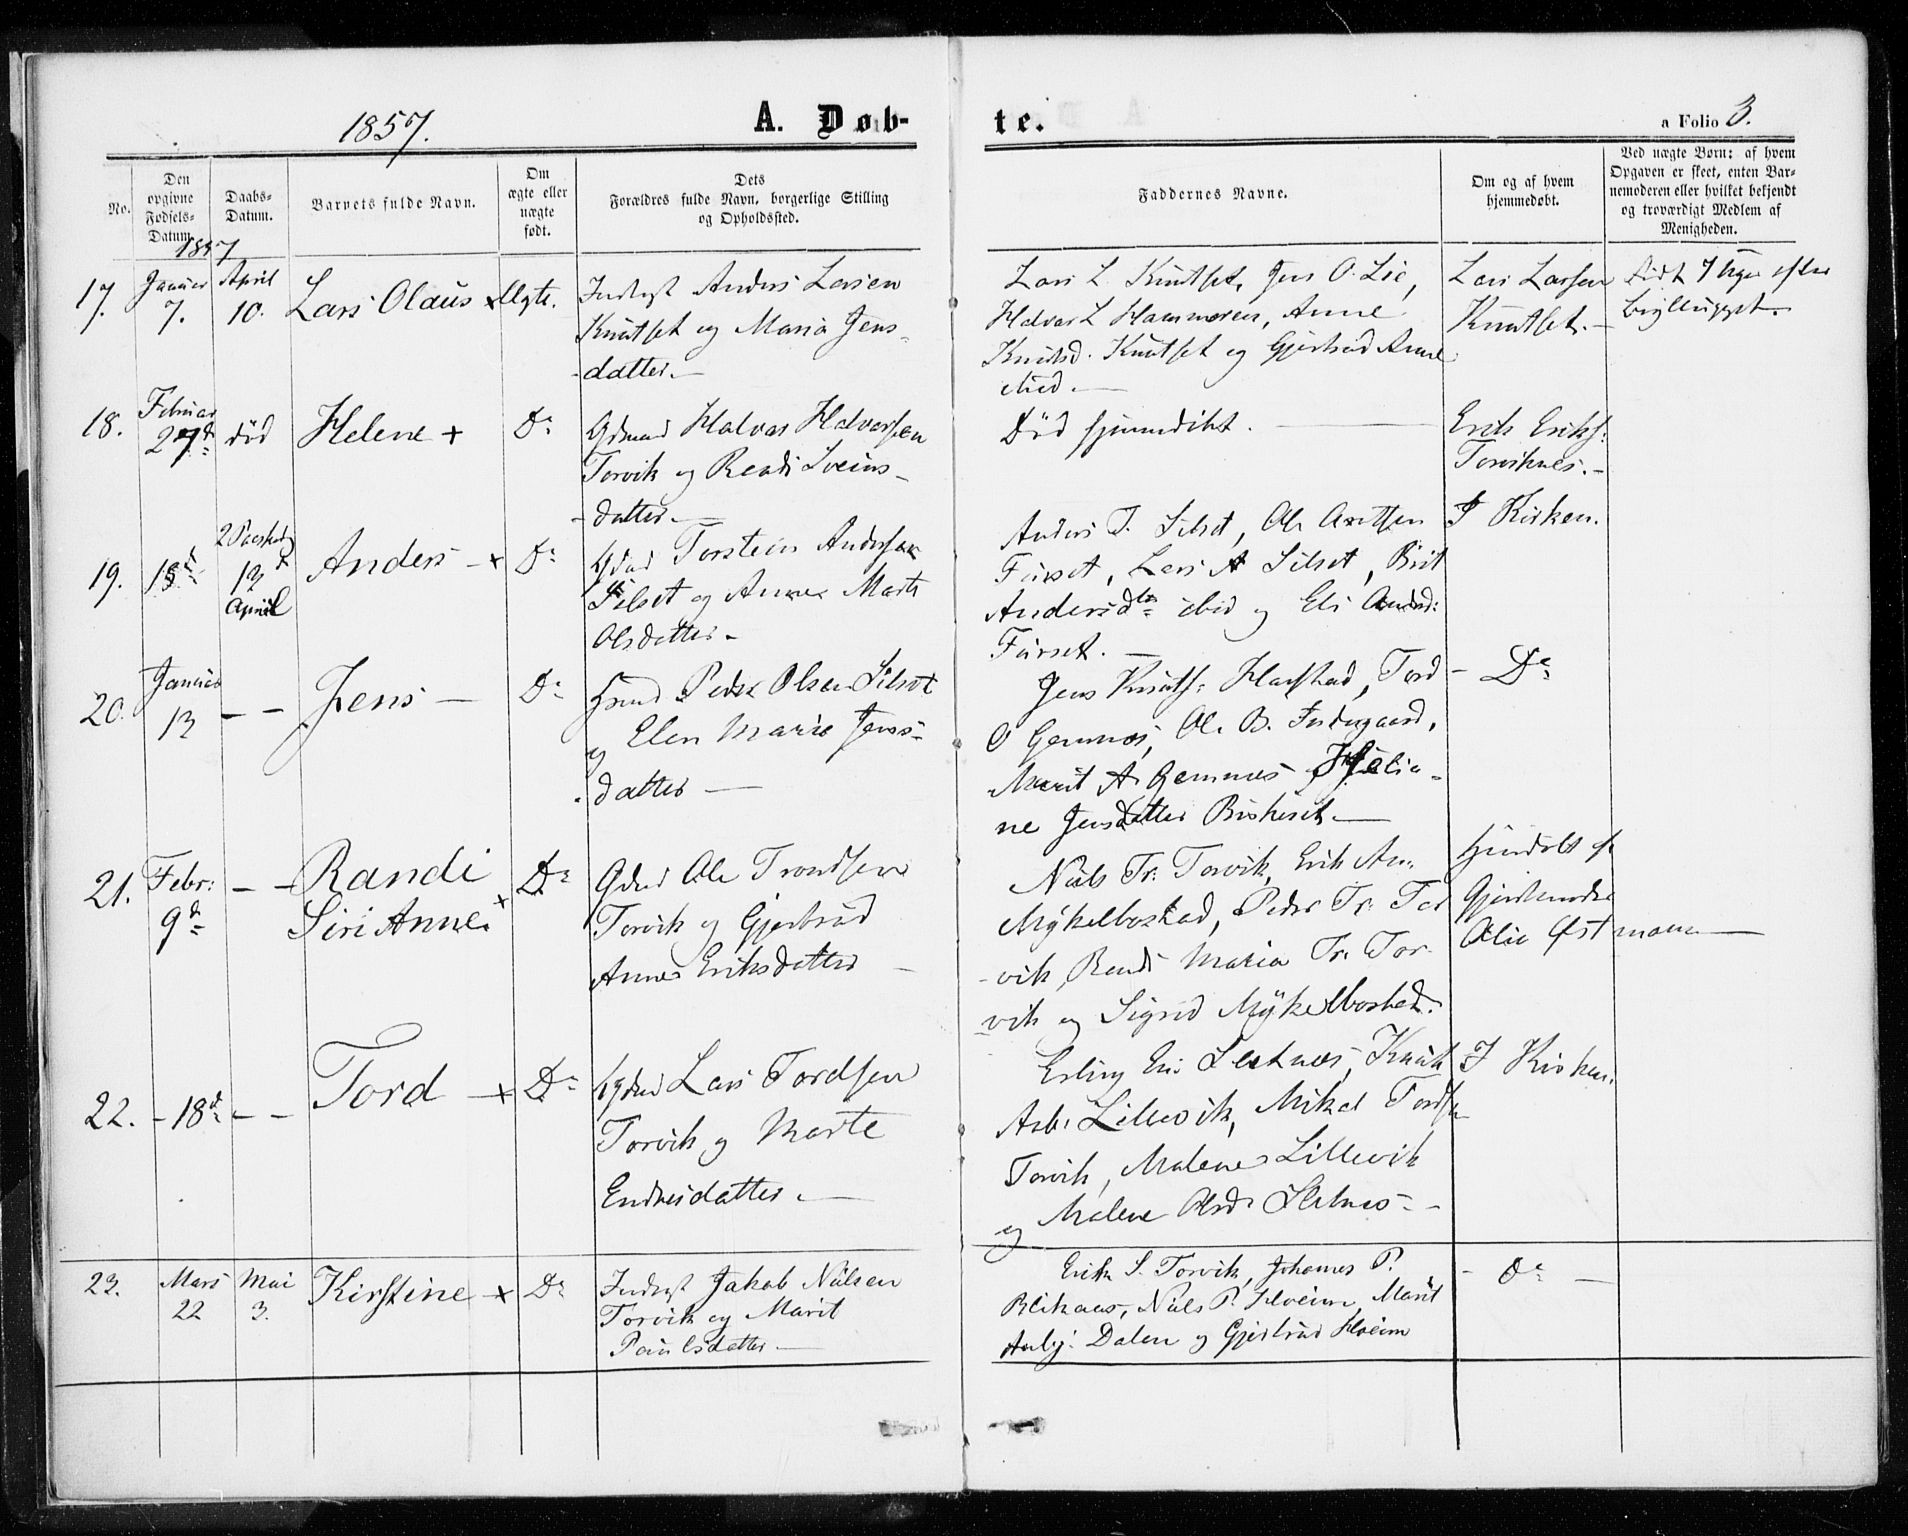 1857.
A. Døb-
te.
a Folio 3.
No.
Den
opgivne
Fødsels-
Datum.
Daabs-
Datum.
Barnets fulde Navn.
Om
ægte eller
uægte
født.
Dets
Forældres fulde Navn, borgerlige Stilling
og Opholdssted.
Faddernes Navne.
Om og af hvem
hjemmedøbt.
Ved uægte Børn: af hvem
Opgaven er skeet, enten Bar-
nemoderen eller hvilket bekjendt
og troværdigt Medlem af
Menigheden.
1857
17.
Januar
7.
April
10.
Lars Olaus x
Ægte.
Indrgst Anders Larsen
Knutset og Maria Jens-
-datter.
Lars L. Knutset, Jens O. Lie,
Halvar L Hammeren, Anne
Knutsd. Knutset og Gjertrud Anne
ibid.
Lars Larsen
Knutset.
født 7 Uger efter
18.
Februar
27d
død
Helene +
Do
Gdmd Halvar Halvorsen
Torvik og Randi Sveins-
-datter
Død hjemmedøbt.
Erik Eriks:
Torviknes.
19.
18d
2 Paaskedg
13d
April
Anders x
Do
Gdmd Torstein Andersen
Silset og Anne Marte
Olsdatter
Anders T. Silset, Ole Arntsen
Furset, Lars A Silset, Brit
Andersdtr ibid og Eli Amd:
Furset.
I Kirken.
20.
Januar
13
- -
Jens -
Do
Hmd Peder Olsen Silset
og Elen Marie Jens-
-datter
Jens Knuts: Harstad, Tord
O Gemnæs, Ole B. Indergaard,
Marit A. Gemnes, Julia-
ne Jensdatter Biskeset.
- Do
21.
Febr:
9d
- -
Randi
Siri Anne x
Do
Gdmd Ole Trondsen
Torvik og Gjertrud
Anne Eriksdatter
Niels Tr. Torvik, Erik An.
Mykelbostad, Peder Tr. Tor
-vik, Randi Maria Tr. Tor-
vik og Sigrid Mykelbostad.
Hjemdøbt af
Gjordemoder
Olie Østmann
22.
- 18d
- -
Tord x
Do
Gdmd Lars Tordsen
Torvik og Marte
Endresdatter.
Erling Er. Sletnæs, Knut
Asb: Lillevik, Mikal Tords
Torvik, Malene Lillevik
og Malene Olsd: Sletnæs
I Kirken.
23.
Mars
22
Mai
3.
Kirstine x
Do
Indrgst Jakob Nilsen
Torvik og Marit
Paulsdatter
Erik S. Torvik, Johannes P.
Blikaas, Niels P. Hoeim, Marit
Dalen og Gjertrud Hoeim
- Do -